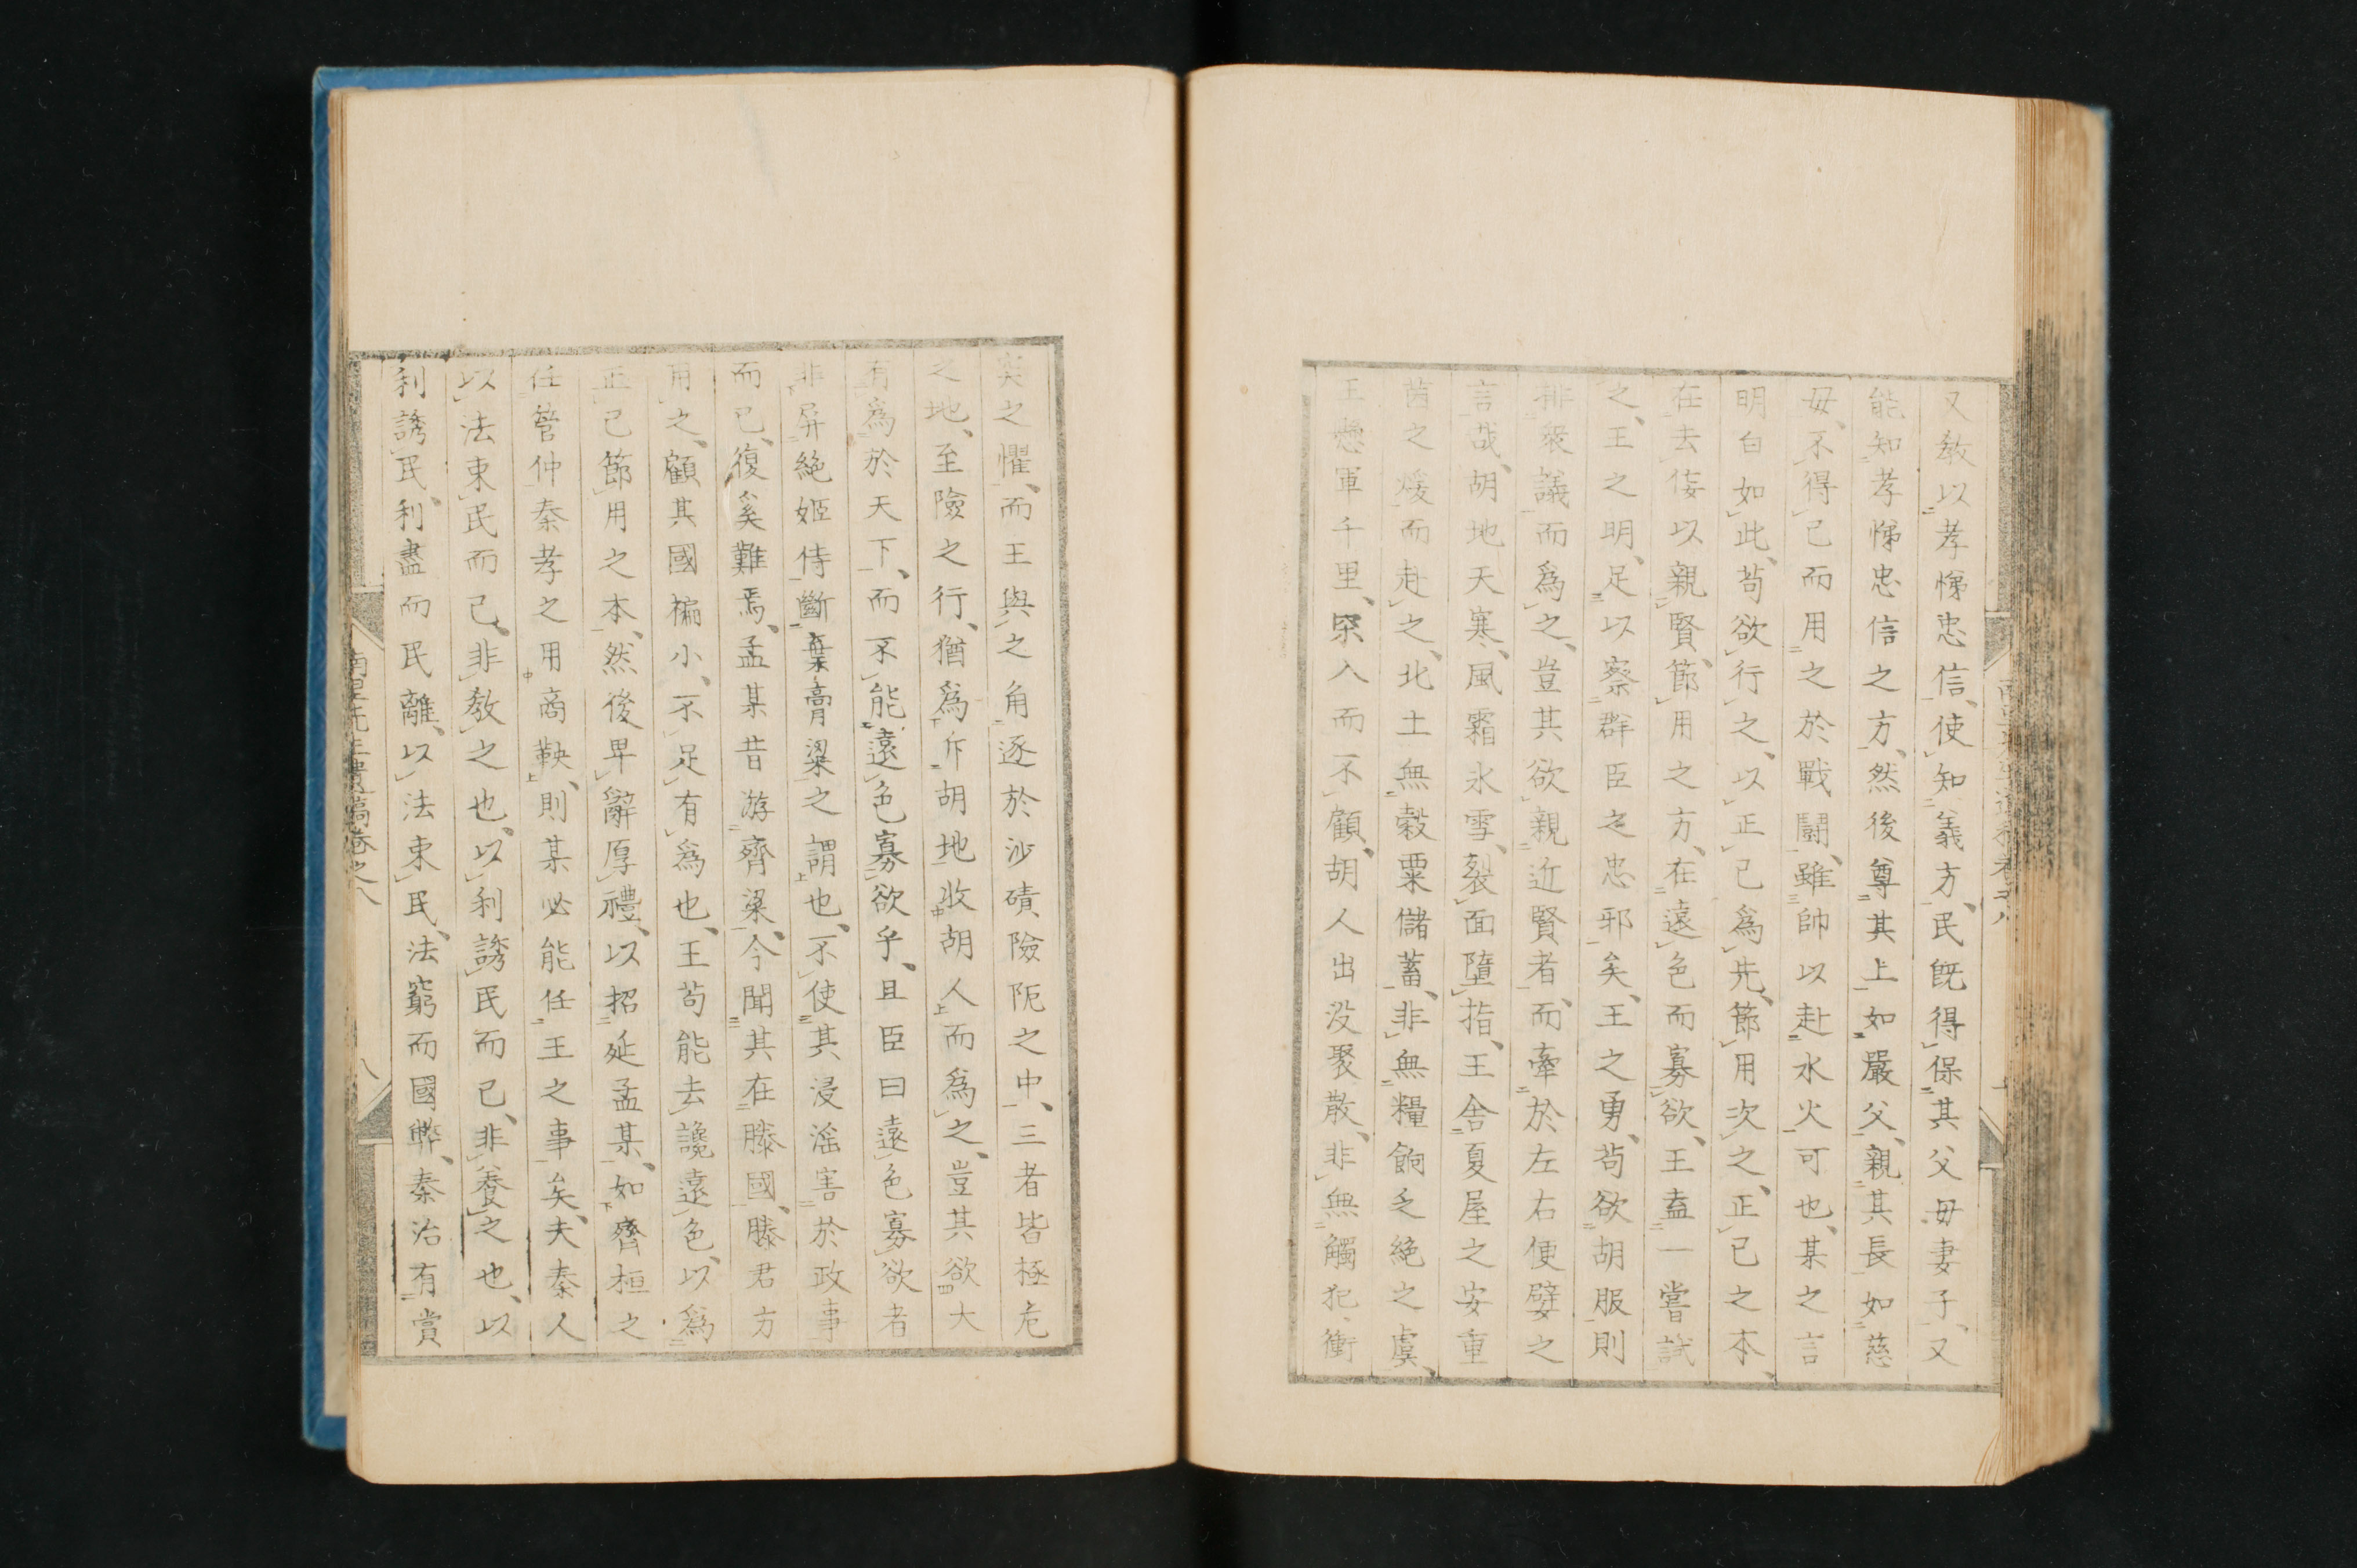 又教以孝悌忠信、使知義方、民既得保其父母妻子、又
能知孝悌忠信之方、然後尊其上如嚴父、親其長如慈
母、不得已而用之於戰鬪、雖帥以赴水火可也、某之言
明白如此、苟欲行之、以正己爲先、節用次之、正己之本、
在去佞以親賢、節用之方、在遠色而寡欲、王盍一嘗試
之、王之明、足以察群臣之忠邪矣、王之勇、苟欲胡服則
排衆議而爲之、豈其欲親近賢者、而牽於左右便嬖之
言哉、胡地天寒、風霜氷雪、裂面墮指、王舍夏屋之安重
茵之煖而赴之、北土無穀粟儲蓄、非無糧餉乏絶之虞、
王懸軍千里、罙入而不顧、胡人出没聚散、非無觸犯衝
突之懼、而王與之角逐於沙磧險阨之中、三者皆極危
之地、至險之行、猶爲斥胡地收胡人而爲之、豈其欲大
有爲於天下、而不能遠色寡欲乎、且臣曰遠色寡欲者
非屏絶姬侍斷棄膏粱之謂也、不使其浸滛害於政事
而已、復奚難焉、孟某昔游齊梁、今聞其在滕國、滕君方
用之、顧其國褊小、不足有爲也、王苟能去讒遠色、以爲
正己節用之本、然後卑辭厚禮、以招延孟某、如齊桓之
任管仲秦孝之用商鞅、則某必能任王之事矣、夫秦人
以法束民而已、非教之也、以利誘民而已、非養之也、以
利誘民、利盡而民離、以法束民、法窮而國弊、秦治有賞
南里先生遺稿卷之八
八